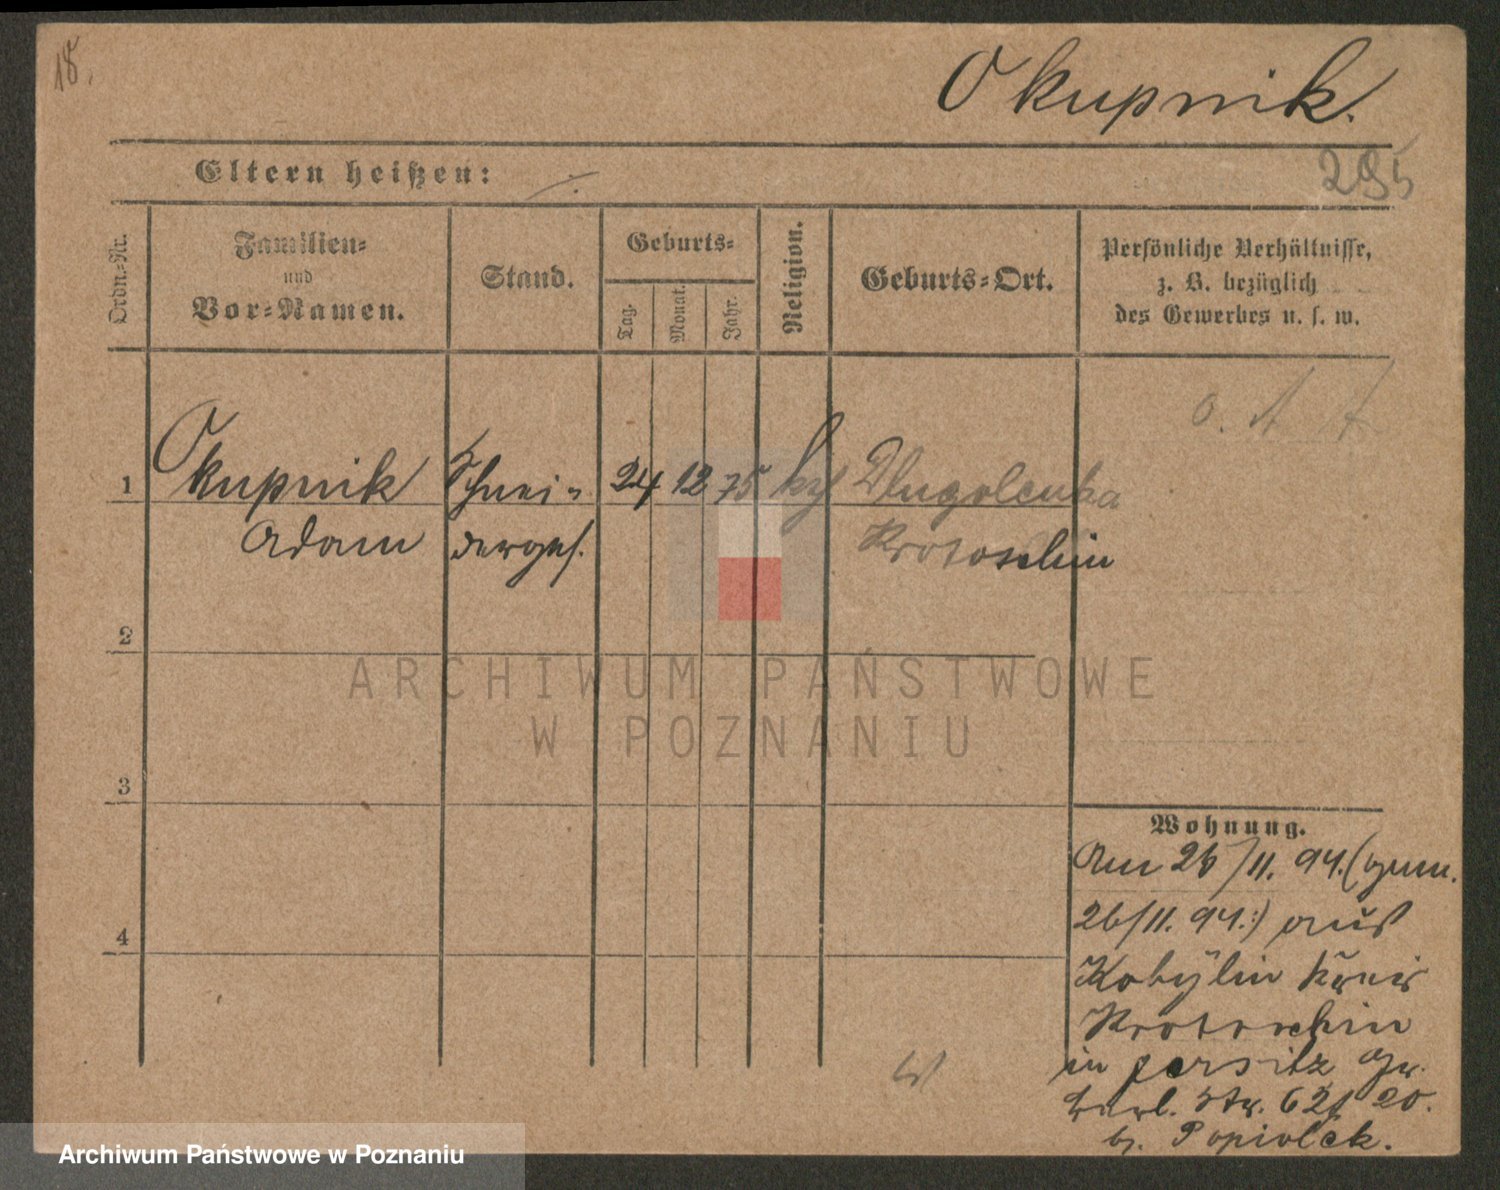 18.
Okupnik.
Eltern heißen: ./.
295
Ordn.=Nr.
Familien=
und
Vor=Namen.
Stand.
Geburts=
Tag.
Monat.
Jahr.
Religion.
Geburts=Ort.
Persönliche Verhältnisse,
z. B. bezüglich
des Gewerbes u. s. w.
1 Okupnik Schnei= 24 12 75 Dlugolenka
Adam derges. Krotoschin
2
3
4
Wohnung.
Am 26/11. 94. (gem.
26/11. 94.:) aus
Kobylin Kreis
Krotoschin
in Jersitz Gr.
Berl. Str. 62
b. Popiolek.
ARCHIWUM PAŃSTWOWE
W POZNANIU
Archiwum Państwowe w Poznaniu